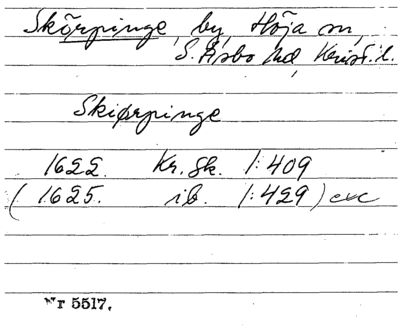 Skörpinge, by, Höja sn,
S. Åsbo hd, Krist. l.
Skiørpinge
1622. Kr. Sk. 1:409
(1625. ib. 1:429) exc
Nr 5517.